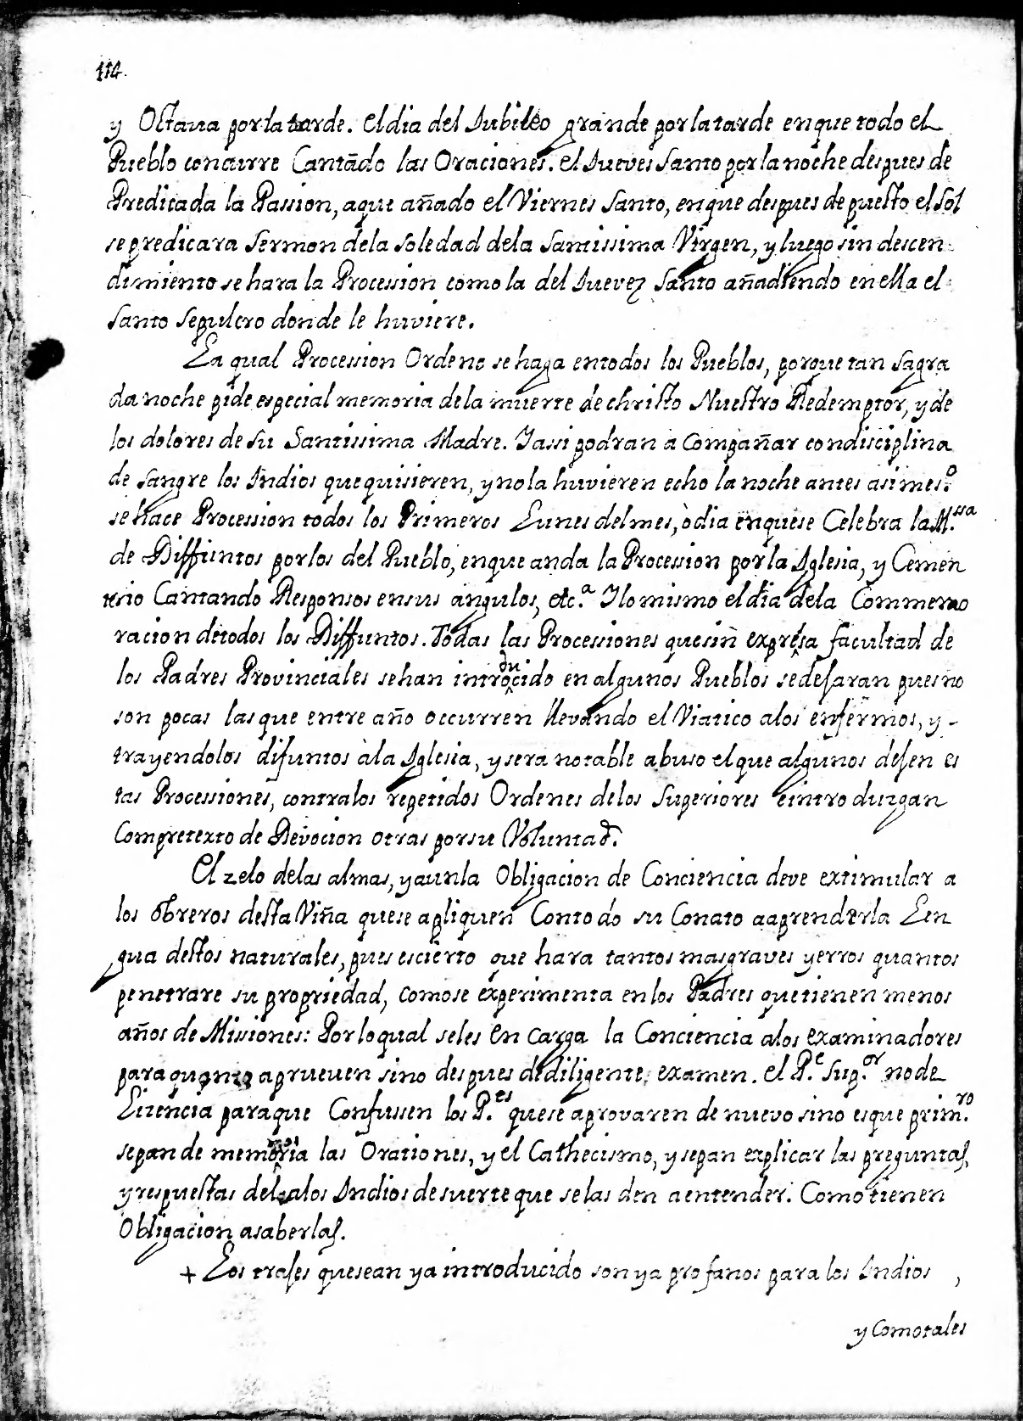 114.
y Octava por la tarde. El dia del Jubileo grande por la tarde en que todo el
Pueblo concurre Cantãdo las Oraciones. El Jueves Santo por la noche despues de
Predicada la Passion, a que añado el Viernes Santo, en que despues de puesto el sol
se predicara Sermon de la soledad de la Santissima Virgen, y luego sin descen-
dimiento se hara la Procession como la del Juevez Santo añadiendo en ella el
Santo Sepulcro donde le huviere.
La qual Procession Ordeno se haga en todos los Pueblos, porque tan sagra
da noche pide especial memoria de la muerte de christo Nuestro Redemptor, y de
los dolores de su Santissima Madre. Y assi podran acompañar con disciplina
de sangre los Indios que quisieren, y no la huvieren echo la noche antes asimes.º
se hace Procession todos los Primeros Lunes del mes, ò dia en que se Celebra la M.ssa
de Diffuntos por los del Pueblo, en que anda la Procession por la Iglesia, y Cemen
terio Cantando Responsos en sus angulos, etc.ª Y lo mismo el dia de la Commemo
racion de todos los Diffuntos. Todas las Processiones que sin expresa facultad de
los Padres Provinciales se han introducido en algunos Pueblos se dejaran pues no
son pocas las que entre año occurren llevando el Viatico a los enfermos, y -
trayendo los difuntos à la Iglesia, y sera notable abuso el que algunos dejen es
tas Processiones, contra los repetidos Ordenes de los Superiores e introduzgan
Com pretexto de Devocion otras por su Voluntad.
El zelo de las almas, y aun la Obligacion de Conciencia deve extimular a
los obreros desta Viña que se apliquen Con todo su Conato a aprender la Len
gua destos naturales, pues es cierto que hara tantos mas graves yerros quantos
penetrare su propriedad, como se experimenta en los Padres que tienen menos
años de Missiones: Por lo qual se les En carga la Conciencia a los examinadores
para que no aprueven sino despues de diligente examen. El P.e Sup.or no de
Lizencia para que Confiessen los P.es que se aprovaren de nuevo sino es que prim.ro
sepan de memoria las Orationes, y el Cathecismo, y sepan explicar las preguntas,
y respuestas del a los Indios de suerte que se las den a entender. Como tienen
Obligacion a saberlas.
+ Los trajes que sean ya introducido son ya profanos para los Indios ,
y Como tales